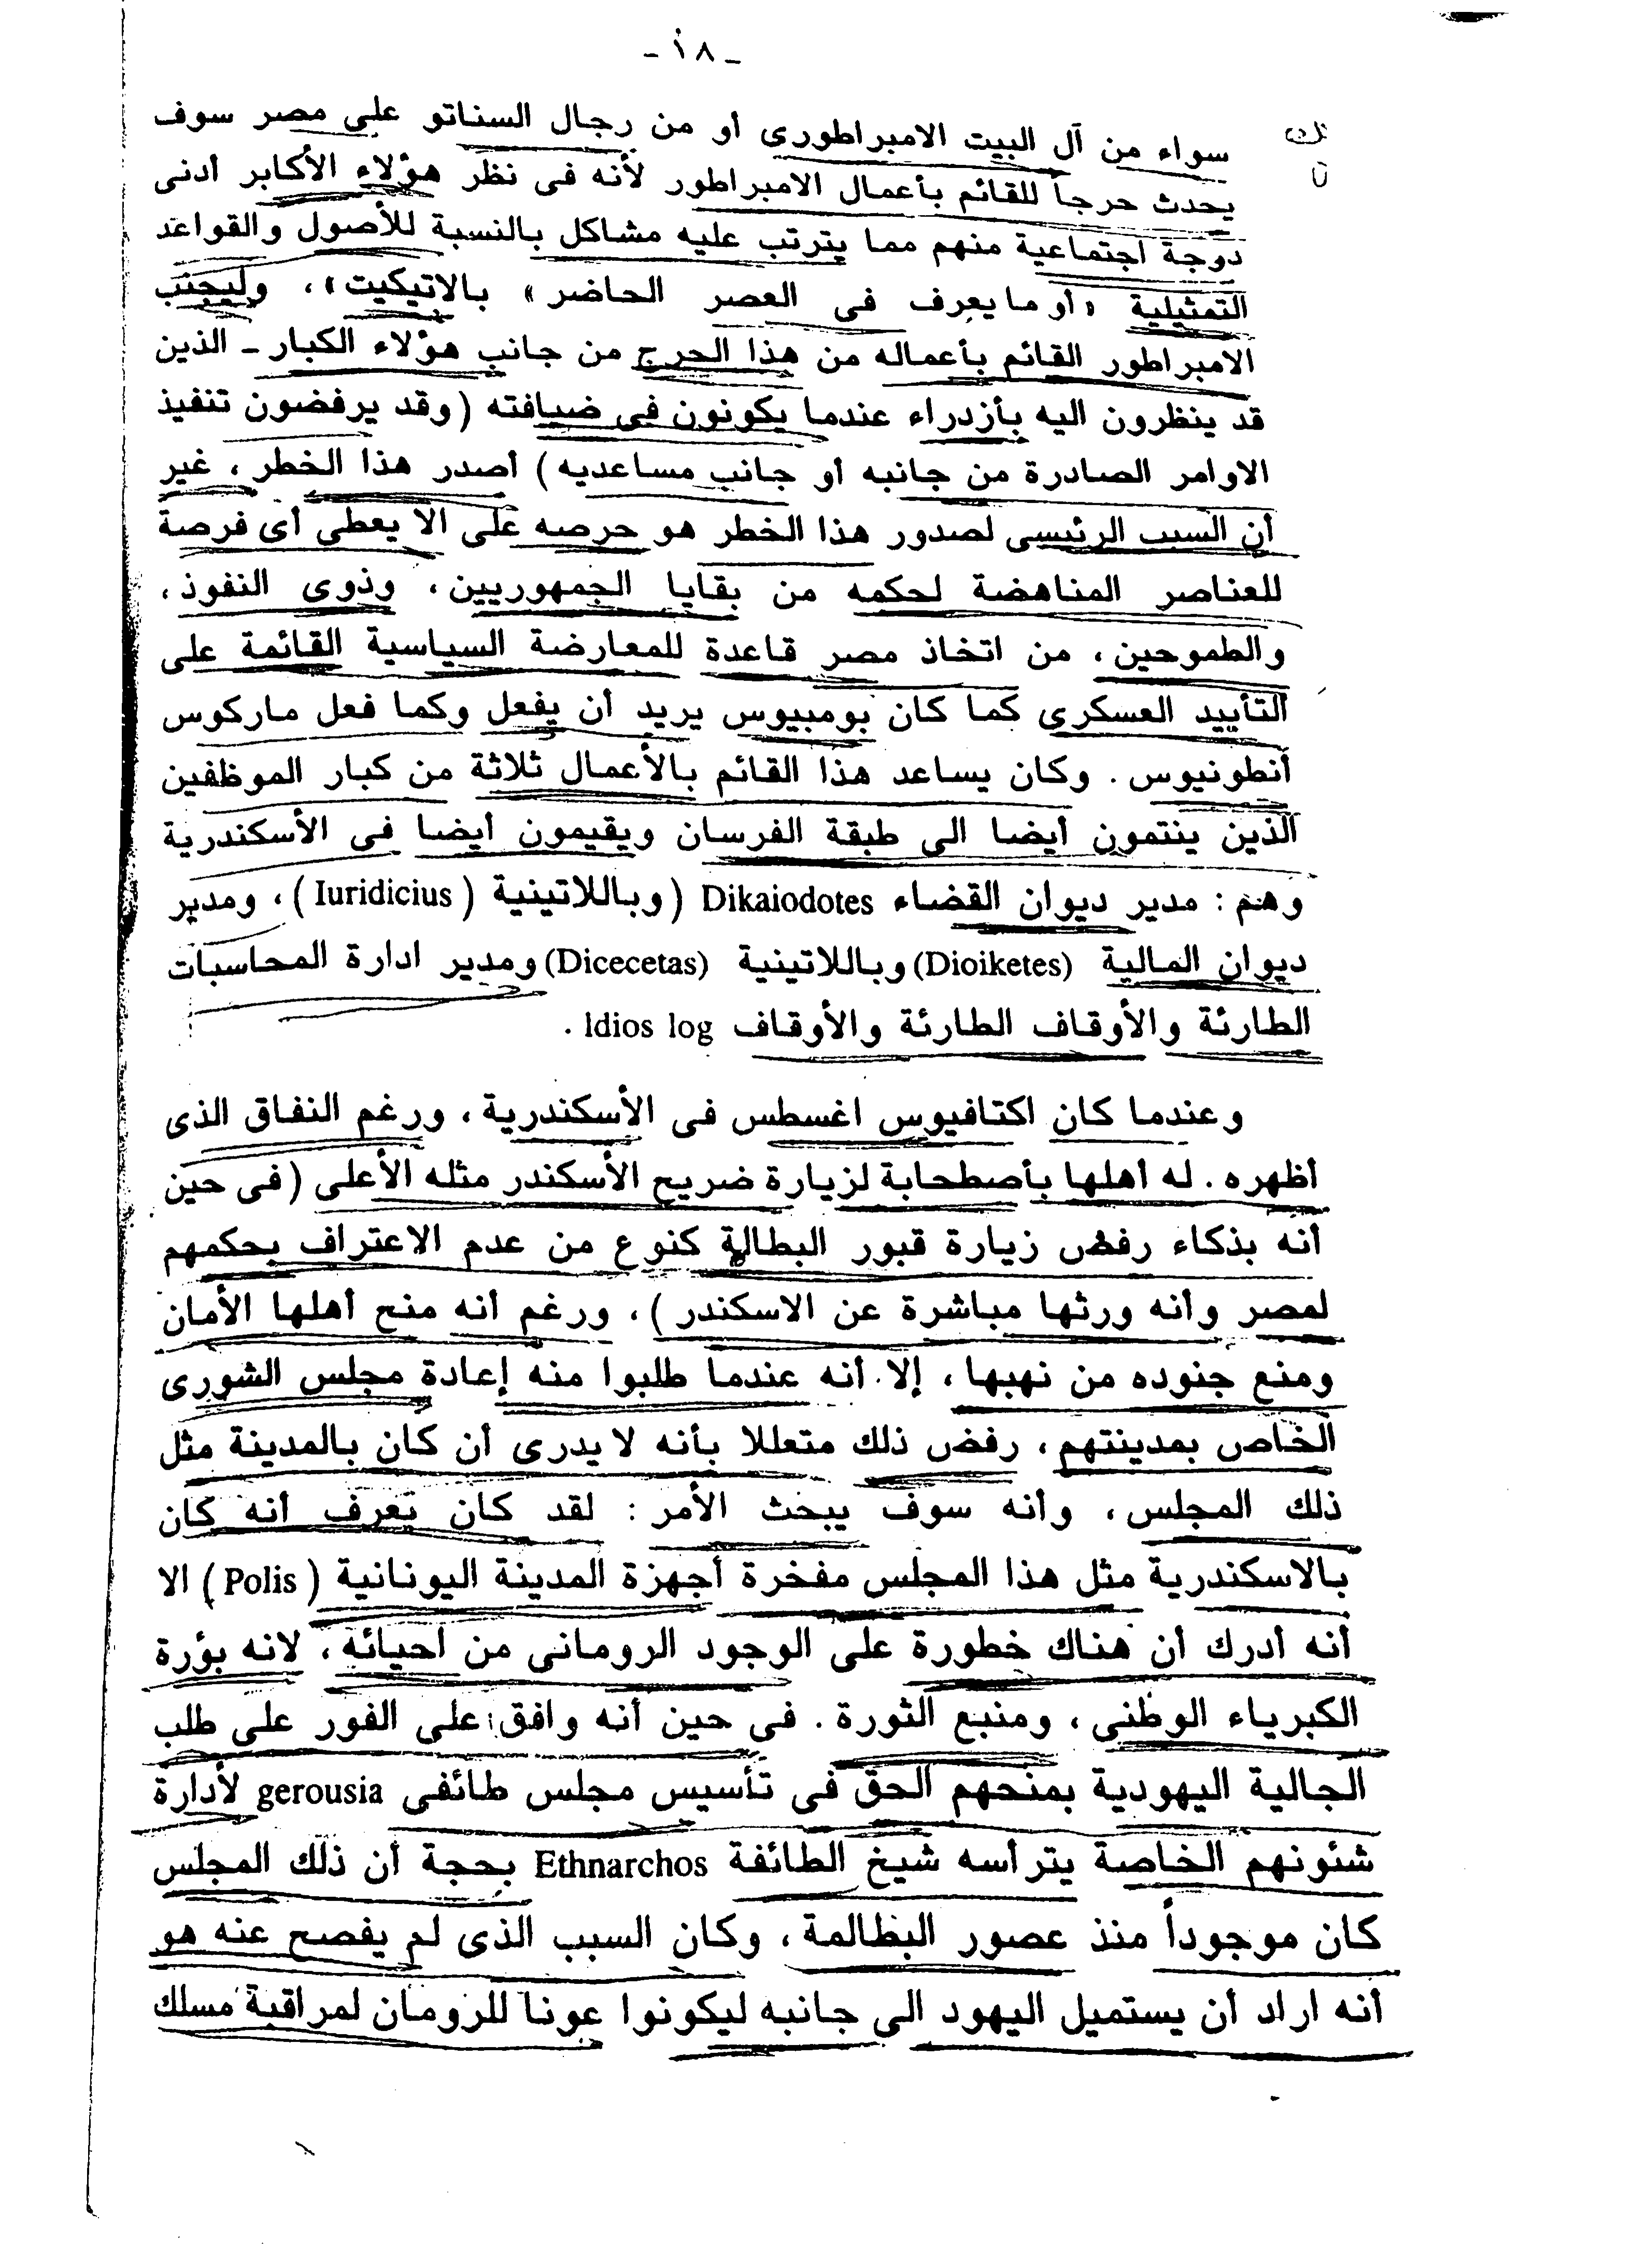 - ١٨ -
سواء من آل البيت الامبراطورى أو من رجال السناتو على مصر سوف
يحدث حرجاً للقائم بأعمال الامبراطور لأنه فى نظر هؤلاء الأكابر أدنى
دوجة اجتماعية منهم مما يترتب عليه مشاكل بالنسبة للأصول والقواعد
التمثيلية «أو ما يعرف فى العصر الحاضر» بالاتيكيت»، وليجنب
الامبراطور القائم بأعماله من هذا الحرج من جانب هؤلاء الكبار ـ الذين
قد ينظرون اليه بأزدراء عندما يكونون فى ضيافته (وقد يرفضون تنفيذ
الاوامر الصادرة من جانبه أو جانب مساعديه) أصدر هذا الخطر، غير
أن السبب الرئيسى لصدور هذا الخطر هو حرصه على ألا يعطى أى فرصة
للعناصر المناهضة لحكمه من بقايا الجمهوريين، وذوى النفوذ،
والطموحين، من اتخاذ مصر قاعدة للمعارضة السياسية القائمة على
التأييد العسكرى كما كان بومبيوس يريد أن يفعل وكما فعل ماركوس
أنطونيوس. وكان يساعد هذا القائم بالأعمال ثلاثة من كبار الموظفين
الذين ينتمون أيضا الى طبقة الفرسان ويقيمون أيضا فى الأسكندرية
وهم: مدير ديوان القضاء Dikaiodotes (وباللاتينية (Iuridicius)، ومدير
ديوان المالية (Dioiketes) وباللاتينية (Dicecetas) ومدير ادارة المحاسبات
الطارئة والأوقاف الطارئة والأوقاف Idios log .
وعندما كان اكتافيوس اغسطس فى الأسكندرية، ورغم النفاق الذى
أظهره. له أهلها بأصطحابة لزيارة ضريح الأسكندر مثله الأعلى (فى حين
أنه بذكاء رفض زيارة قبور البطالمة كنوع من عدم الاعتراف بحكمهم
لمصر وأنه ورثها مباشرة عن الاسكندر)، ورغم أنه منح أهلها الأمان
ومنع جنوده من نهبها، إلا أنه عندما طلبوا منه إعادة مجلس الشورى
الخاص بمدينتهم، رفض ذلك متعللا بأنه لا يدرى أن كان بالمدينة مثل
ذلك المجلس، وأنه سوف يبحث الأمر: لقد كان يعرف أنه كان
بالاسكندرية مثل هذا المجلس مفخرة أجهزة المدينة اليونانية (Polis) الا
أنه أدرك أن هناك خطورة على الوجود الرومانى من احيائه، لانه بؤرة
الكبرياء الوطنى، ومنبع الثورة. فى حين أنه وافق على الفور على طلب
الجالية اليهودية بمنحهم الحق فى تأسيس مجلس طائفى gerousia لأدارة
شئونهم الخاصة يترأسه شيخ الطائفة Ethnarchos بحجة أن ذلك المجلس
كان موجوداً منذ عصور البطالمة، وكان السبب الذى لم يفصح عنه هو
أنه اراد أن يستميل اليهود الى جانبه ليكونوا عونا للرومان لمراقبة مسلك